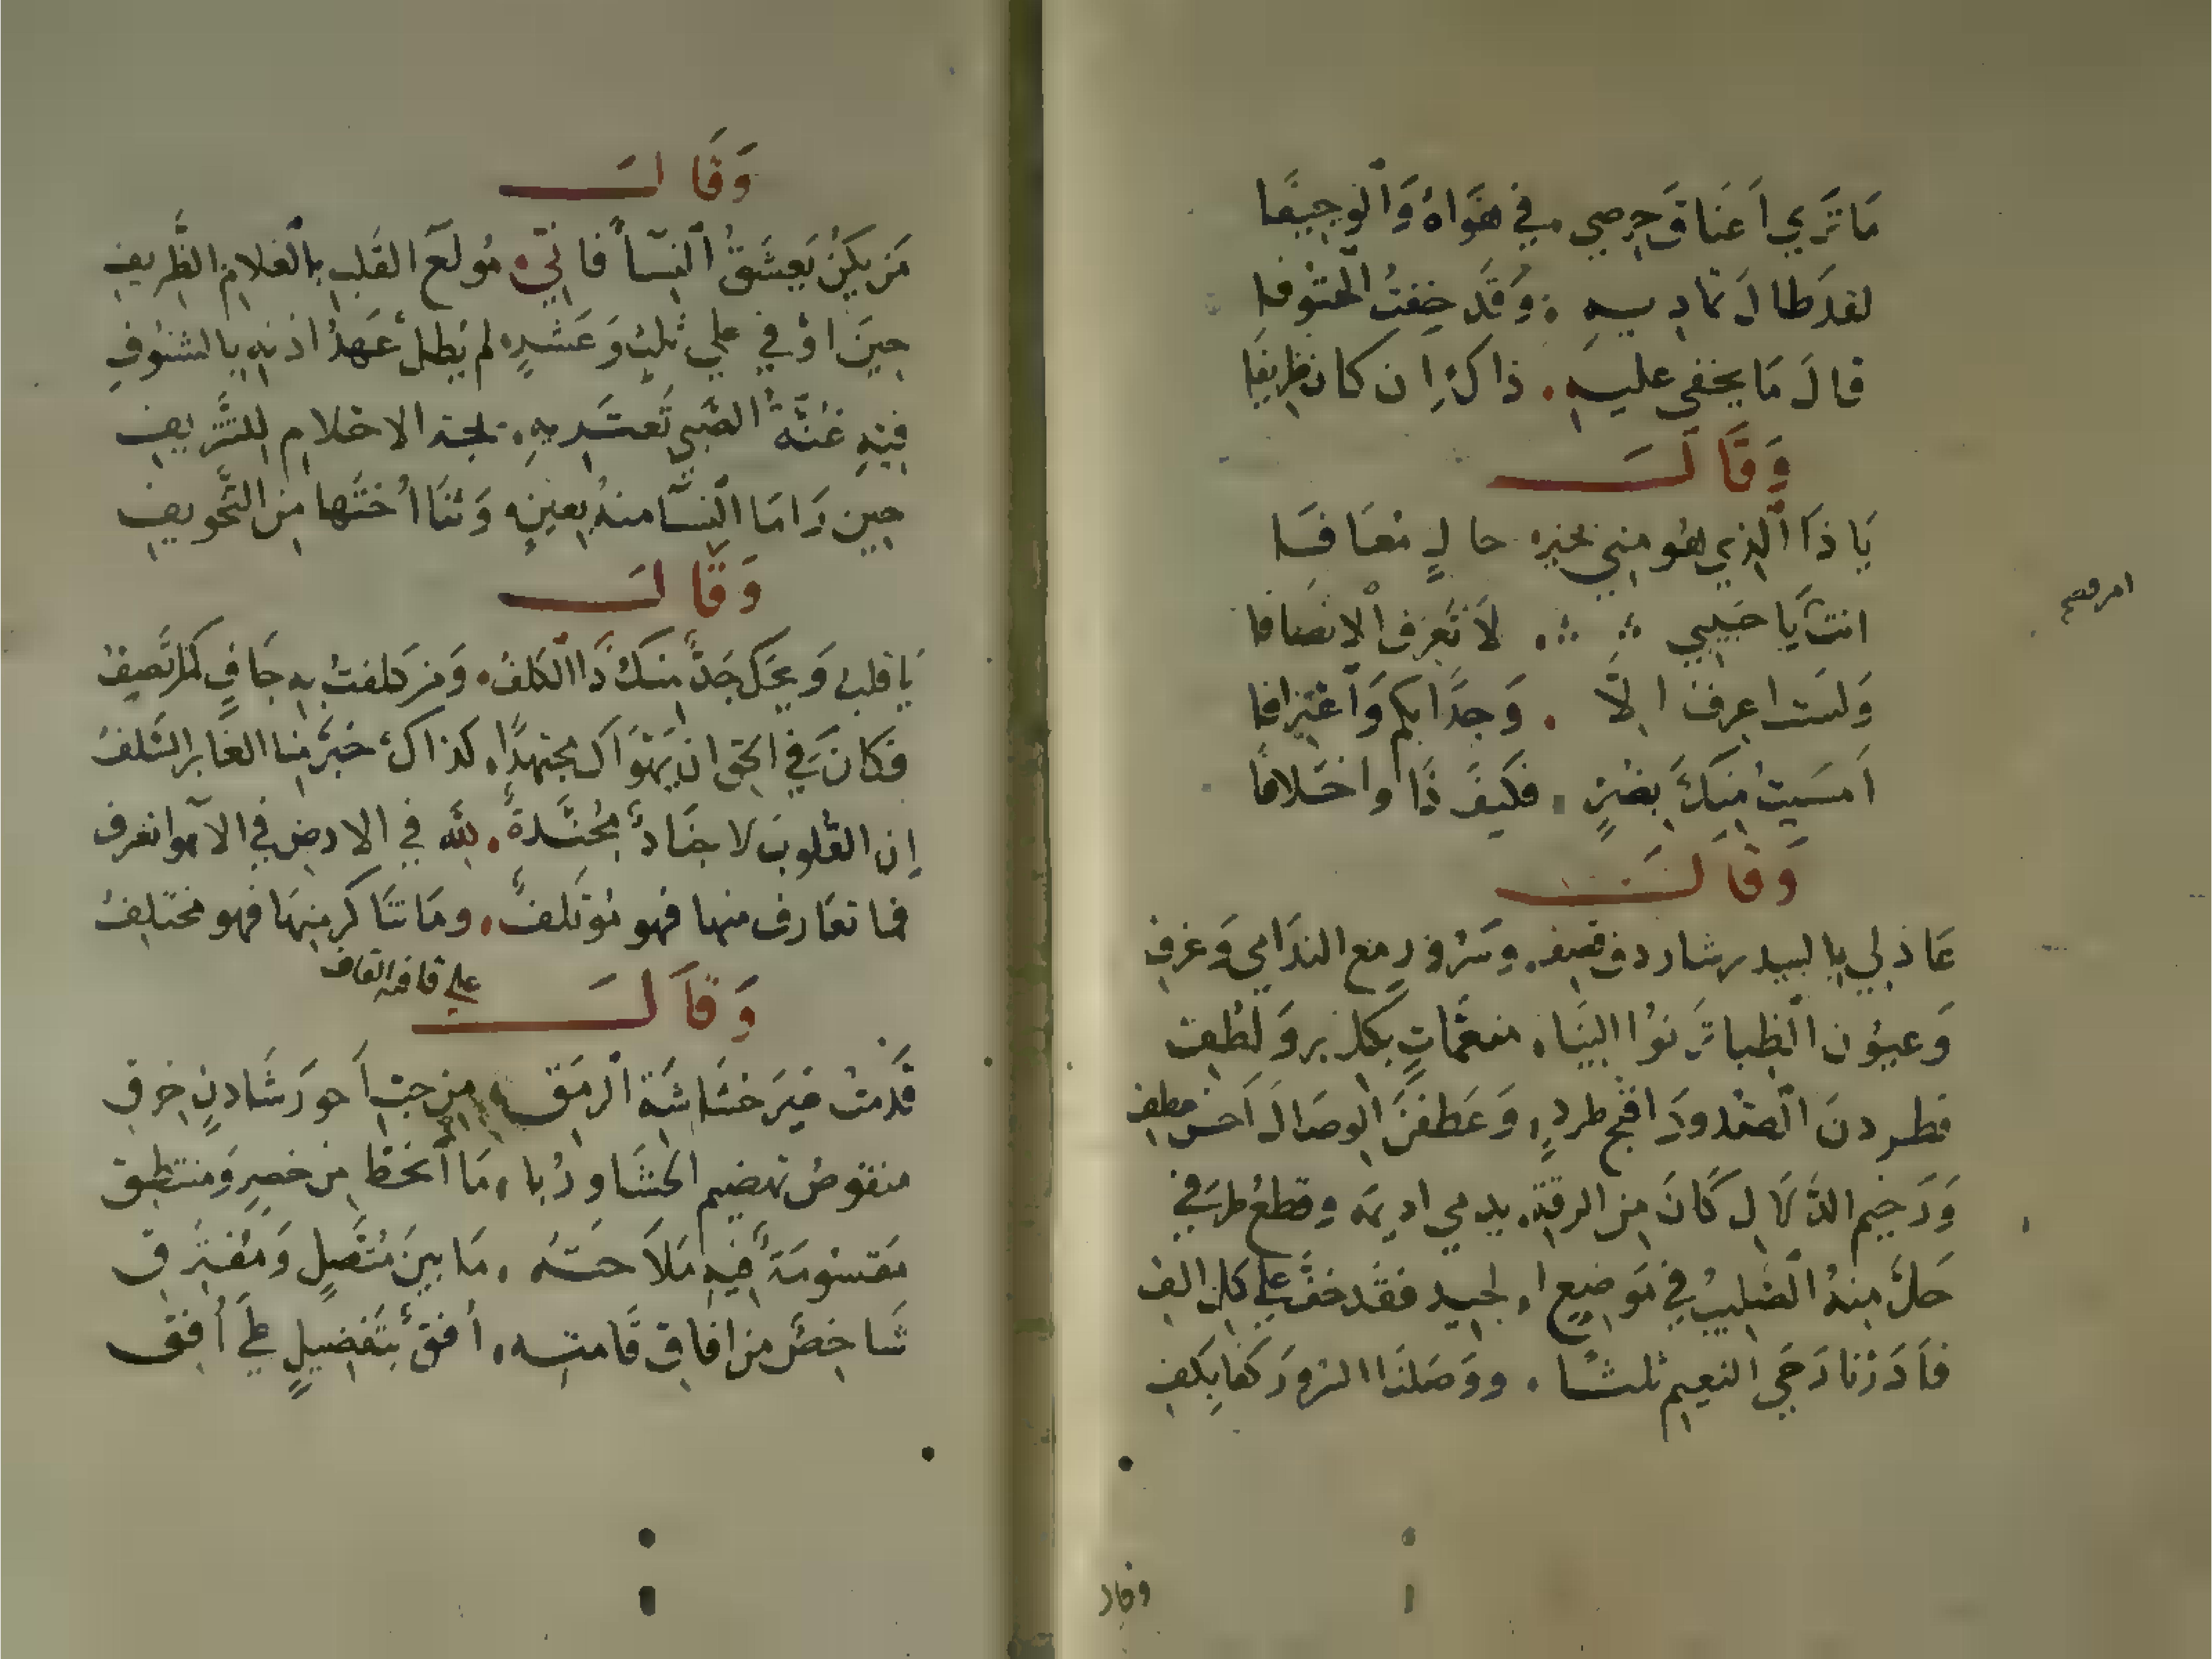 مَا تَرَي اَعنَاقَ حِرصِي في هَوَاهُ وَالوَجيفَا
لقد طالَ تماديه وَقَد خِفتُ الحتوفا
قالَ مَا يخفى عليه ذاكَ اِن كان ظريفا
وَقَالَ
يَا ذَا الَّذِي هُو مِنِّي بخير حالٍ مُعَافَا
انتَ يَا حَبيبي لَا تَعرف الاِنصَافا
وَلستَ اعرف الَّا وَجدًا بكم وَاَعْتِرافا
اَمسَيتُ مِنكَ بِضُرٍ فكَيفَ ذَا واخَلافا
وَقَالَ
عَاذلي وسُرورٍ مع الندَامي وَعزفِ
وَعيُون الظِباتَرنوُا الينَا منعَّماتٍ بكل بر وَلُطفِ
فطردنَ الصُدودَ اقبح طردٍ وَعَطفنَ الوصَالَ اَحسن عطفِ
وَرَخيم الدَّلَالِ كَانَ مِن الرقة يدمي اديمَه وقطعُ طرفي
حَلَّ مِنهُ الصَليبُ في مَوَاضِعِ الجيد فقَد خفَّ علي كل الفِ
فَاَدَرنا رَحَي النعيم ثلثًا ووَصَلنَا السرورَ كفا بكَفِ
وقال
وَقَالَ
مَن يكُن يَعشَقُ النِسآ فاني مُولَعَ القَلبِ بالغلامِ الظَّريفِ
حِينَ اوْفي علي ثلثٍ وَعَشرٍ لم يَطل عَهدُ اذنهِ بالشنوُفِ
فيهِ غُنَّةُ الصَبي تَعتَريهِ الاحتلام للتَشريفِ
حِين رَامَا النِسَا منهُ بعينٍ وَثنَا اُختَها مِن التَّخويفِ
وَقَالَ
يَا قلب وَيحَكَ جَدَّ مِنكَ ذَا الكَلفُ وَمَن كلفتُ به جَافٍ كما تَصِفُ
فكَانَ في الحَق ان يَهوَاكَ مجتهدًا كذاكَ خَبَّرَ مِنا الغَابر السَلفُ
اِن القُلوبَ لاَجنَادٌ مُجنَّدةٌ للّه في الارض في الاهوا تعرف
فما تعَارف منها فهو مُوتَلفٌ ومَا تنَاكر مِنهَا فهو مختلفُ
وَقَالَ علي قافية القاف
قَدمتُ غيرَ حشَاشَةِ الرمَقِ مِن حبّ اَحورَ شَادنٍ خرقِ
منقوصُ تهضيم الحشَا ورُبا مَا اَنحَطَّ مِن خصرٍ وَمنتطقِ
مَقسُومَةٌ فيهِ مَلاَحَتهُ مَا بينَ مُتَّصلٍ وَمُفتَرقِ
شَاخِصٌ مِن افاقِ قَامتهِ اُفقٌ بتَفضِيلٍ علَي اُفِقِ